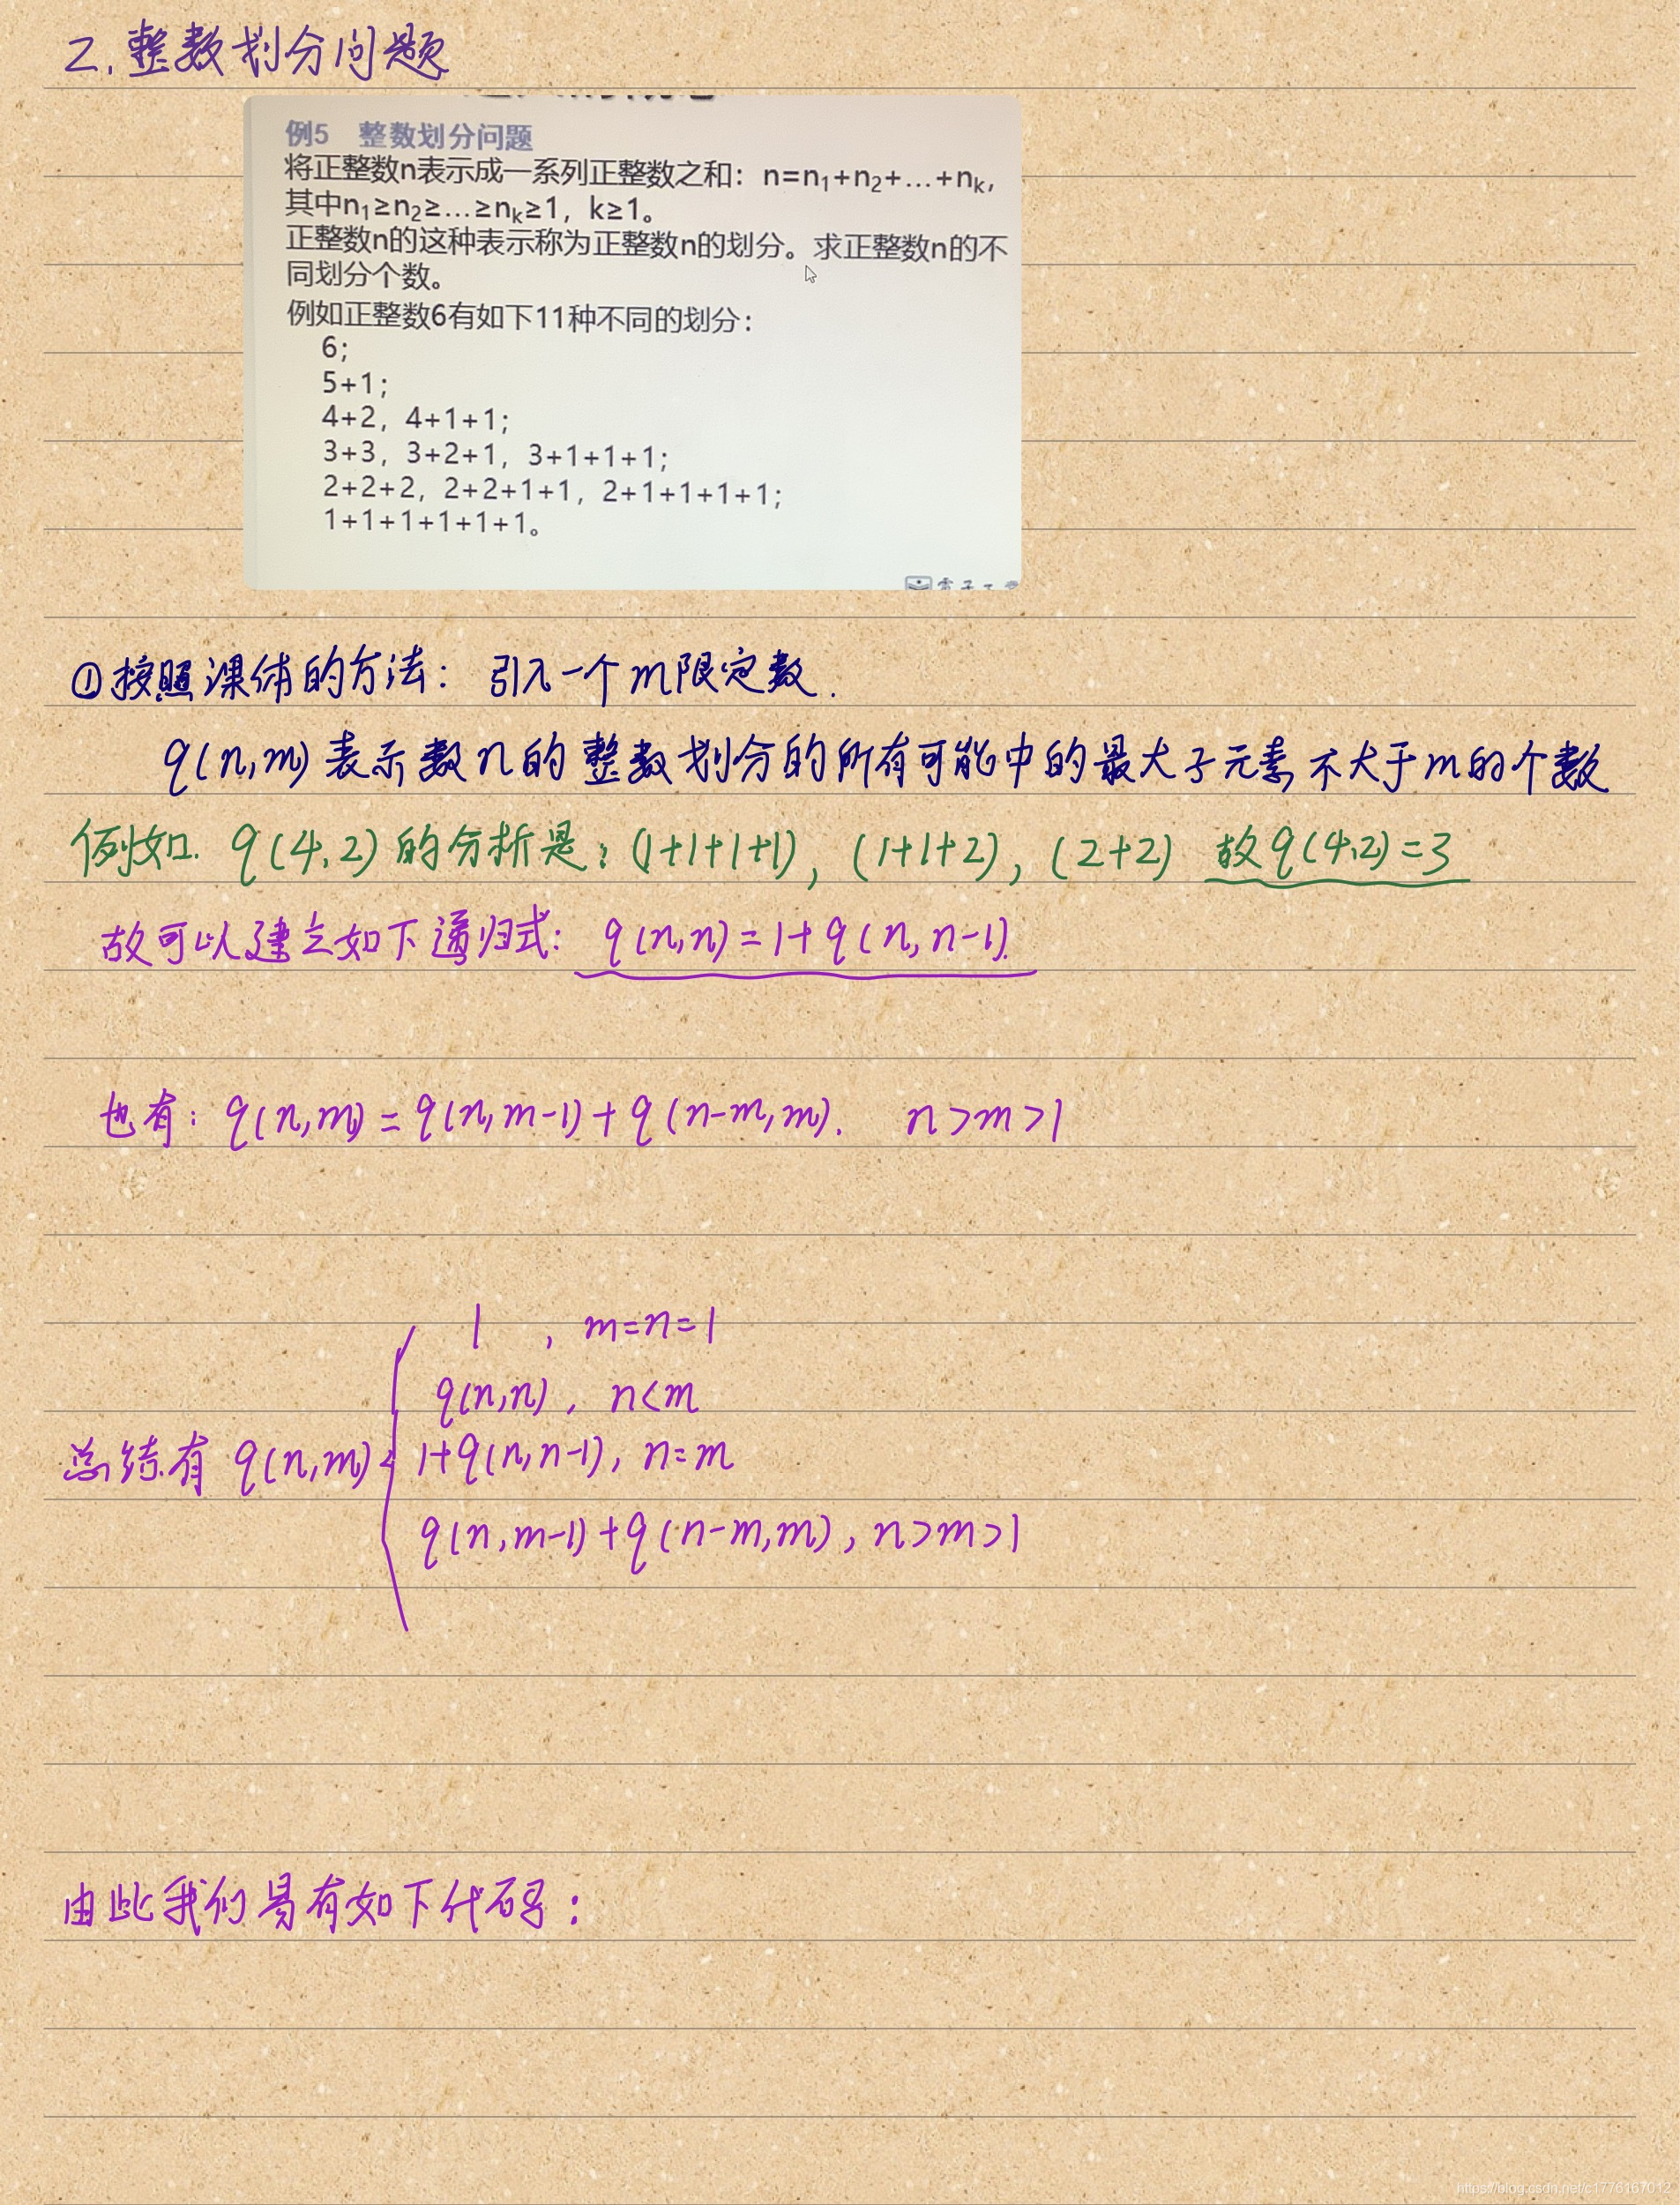 2.整数划分问题
例5 整数划分问题
将正整数n表示成一系列正整数之和：n=n₁+n₂+…+nₖ,
其中n₁≥n₂≥…≥nₖ≥1，k≥1。
正整数n的这种表示称为正整数n的划分。求正整数n的不
同划分个数。
例如正整数6有如下11种不同的划分：
6;
5+1;
4+2，4+1+1;
3+3，3+2+1，3+1+1+1;
2+2+2，2+2+1+1，2+1+1+1+1;
1+1+1+1+1+1。
①按照课体的方法：引入一个m限定数.
q(n,m)表示数n的整数划分的所有可能中的最大子元素不大于m的个数
例如.q(4,2)的分析是：(1+1+1+1), (1+1+2), (2+2) 故q(4,2)=3
故可以建立如下递归式：q(n,n)=1+q(n,n-1).
也有：q(n,m)=q(n,m-1)+q(n-m,m). n>m>1
1 , m=n=1
q(n,n), n<m
总结有 q(n,m) 1+q(n,n-1), n=m
q(n,m-1)+q(n-m,m), n>m>1
由此我们易有如下代码：
https://blog.csdn.net/c1776167012